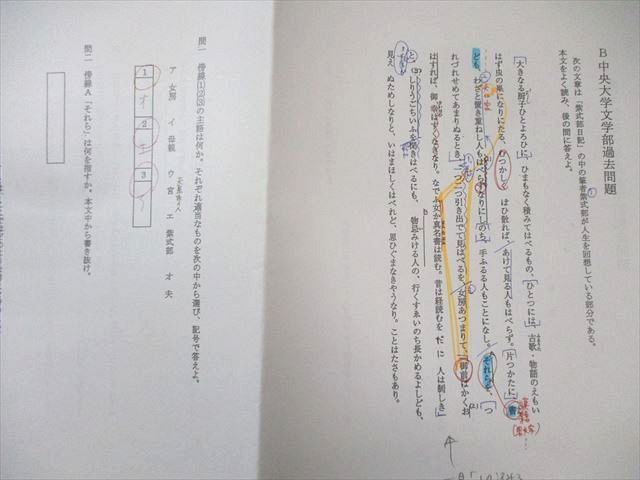 B 中央大学文学部過去問題
次の文章は「紫式部日記」の中の筆者紫式部が人生を回想している部分である。
本文をよく読み、後の問に答えよ。
大きなる厨子ひとよろひに、ひまもなく積みてはべるもの、ひとつには、古歌・物語のえもい
はず虫の巣になりにたる、むつかしくはひ散れば、あけて見る人もはべらず。片つかたに、書
ども、わざと置き重ねし人もはべらずなりにしのち、手ふるる人もことになし。それらを、つ
れづれせめてあまりぬるとき、一つ二つ引き出でて見はべるを、女房あつまりて、「御前はかくお
はすれば、御幸はすくなきなり。なでふ女か真名書は読む。昔は経読むをだに人は制しき」
と、しりうごちいふを聞きはべるにも、物忌みける人の、行くすゑいのち長かめるよしども、
見えぬためしなりと、いはまほしくはべれど、思ひぐまなきやうなり。ことはたさもあり。
問一 傍線(1)(2)(3)の主語は何か。それぞれ適当なものを次の中から選び、記号で答えよ。
ア 女房 イ 母親 ウ 宮 エ 紫式部 オ 夫
1
2
3
問二 傍線A「それら」は何を指すか。本文中から書き抜け。